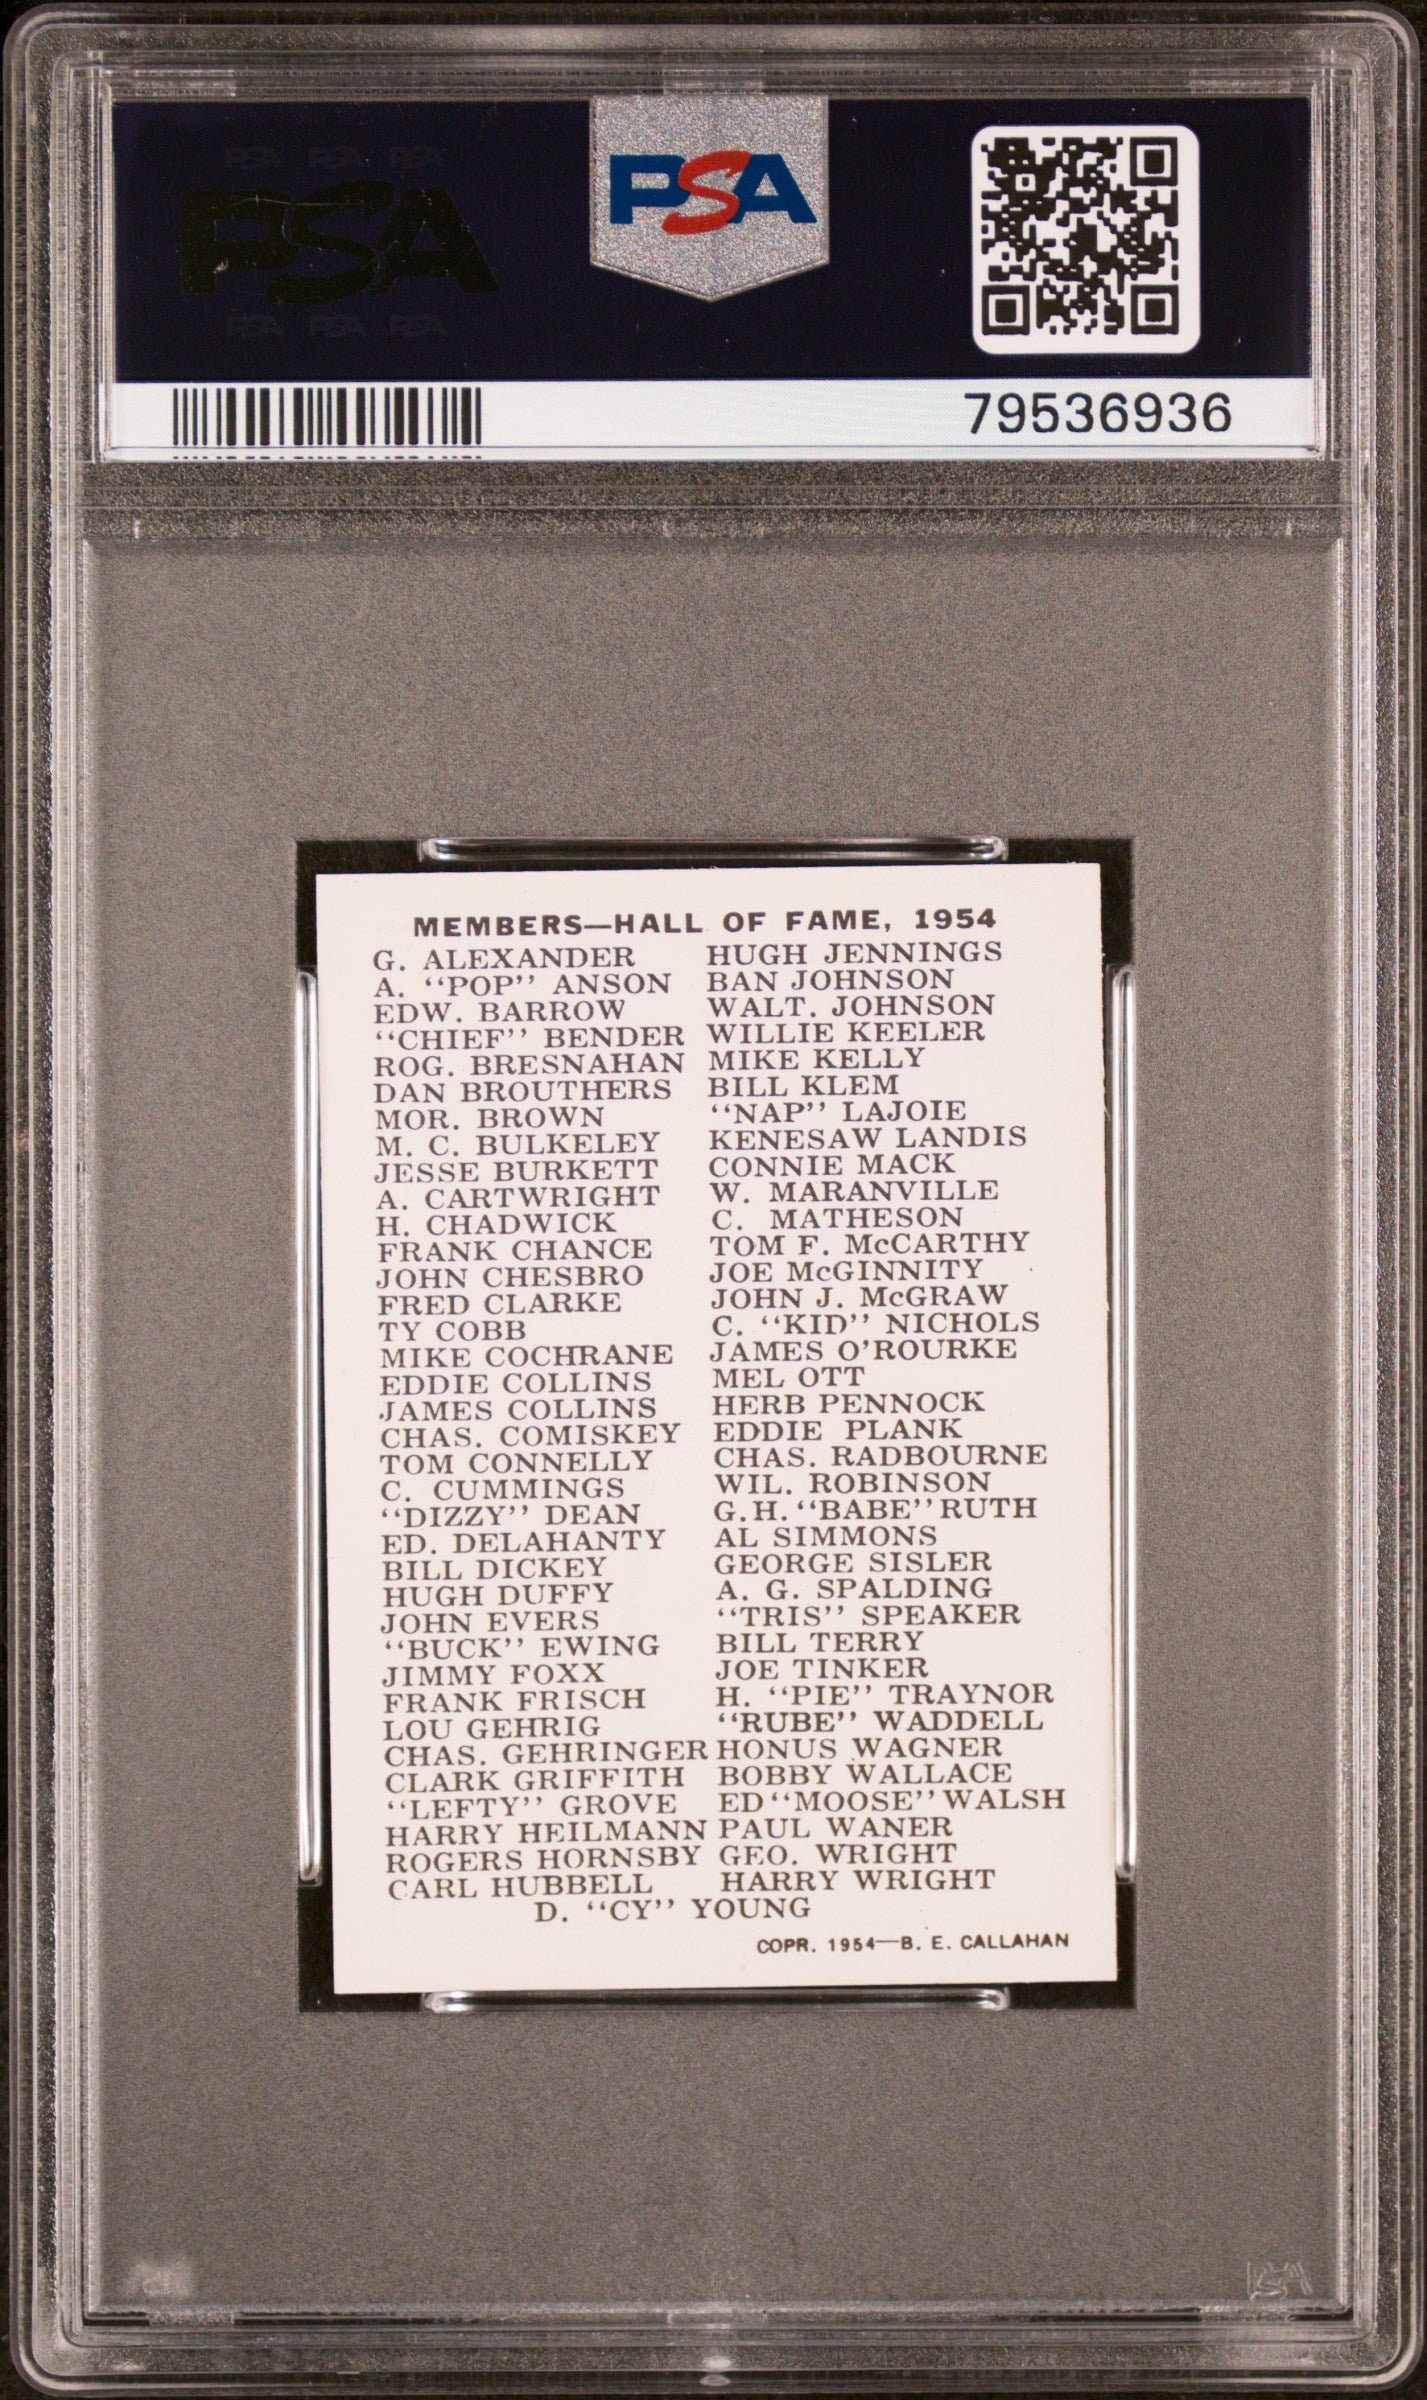 PSA PSA PSA
PSA
PSA PSA PSA
PSA
79536936
MEMBERS—HALL OF FAME, 1954
G. ALEXANDER
A. "POP" ANSON
EDW. BARROW
"CHIEF" BENDER
ROG. BRESNAHAN
DAN BROUTHERS
MOR. BROWN
M. C. BULKELEY
JESSE BURKETT
A. CARTWRIGHT
H. CHADWICK
FRANK CHANCE
JOHN CHESBRO
FRED CLARKE
TY COBB
MIKE COCHRANE
EDDIE COLLINS
JAMES COLLINS
CHAS. COMISKEY
TOM CONNELLY
C. CUMMINGS
"DIZZY" DEAN
ED. DELAHANTY
BILL DICKEY
HUGH DUFFY
JOHN EVERS
"BUCK" EWING
JIMMY FOXX
FRANK FRISCH
LOU GEHRIG
CHAS. GEHRINGER
CLARK GRIFFITH
"LEFTY" GROVE
HARRY HEILMANN
ROGERS HORNSBY
CARL HUBBELL
HUGH JENNINGS
BAN JOHNSON
WALT. JOHNSON
WILLIE KEELER
MIKE KELLY
BILL KLEM
"NAP" LAJOIE
KENESAW LANDIS
CONNIE MACK
W. MARANVILLE
C. MATHESON
TOM F. McCARTHY
JOE McGINNITY
JOHN J. McGRAW
C. "KID" NICHOLS
JAMES O'ROURKE
MEL OTT
HERB PENNOCK
EDDIE PLANK
CHAS. RADBOURNE
WIL. ROBINSON
G.H. "BABE" RUTH
AL SIMMONS
GEORGE SISLER
A. G. SPALDING
"TRIS" SPEAKER
BILL TERRY
JOE TINKER
H. "PIE" TRAYNOR
"RUBE" WADDELL
HONUS WAGNER
BOBBY WALLACE
ED "MOOSE" WALSH
PAUL WANER
GEO. WRIGHT
HARRY WRIGHT
D. "CY" YOUNG
COPR. 1954—B. E. CALLAHAN
PSA